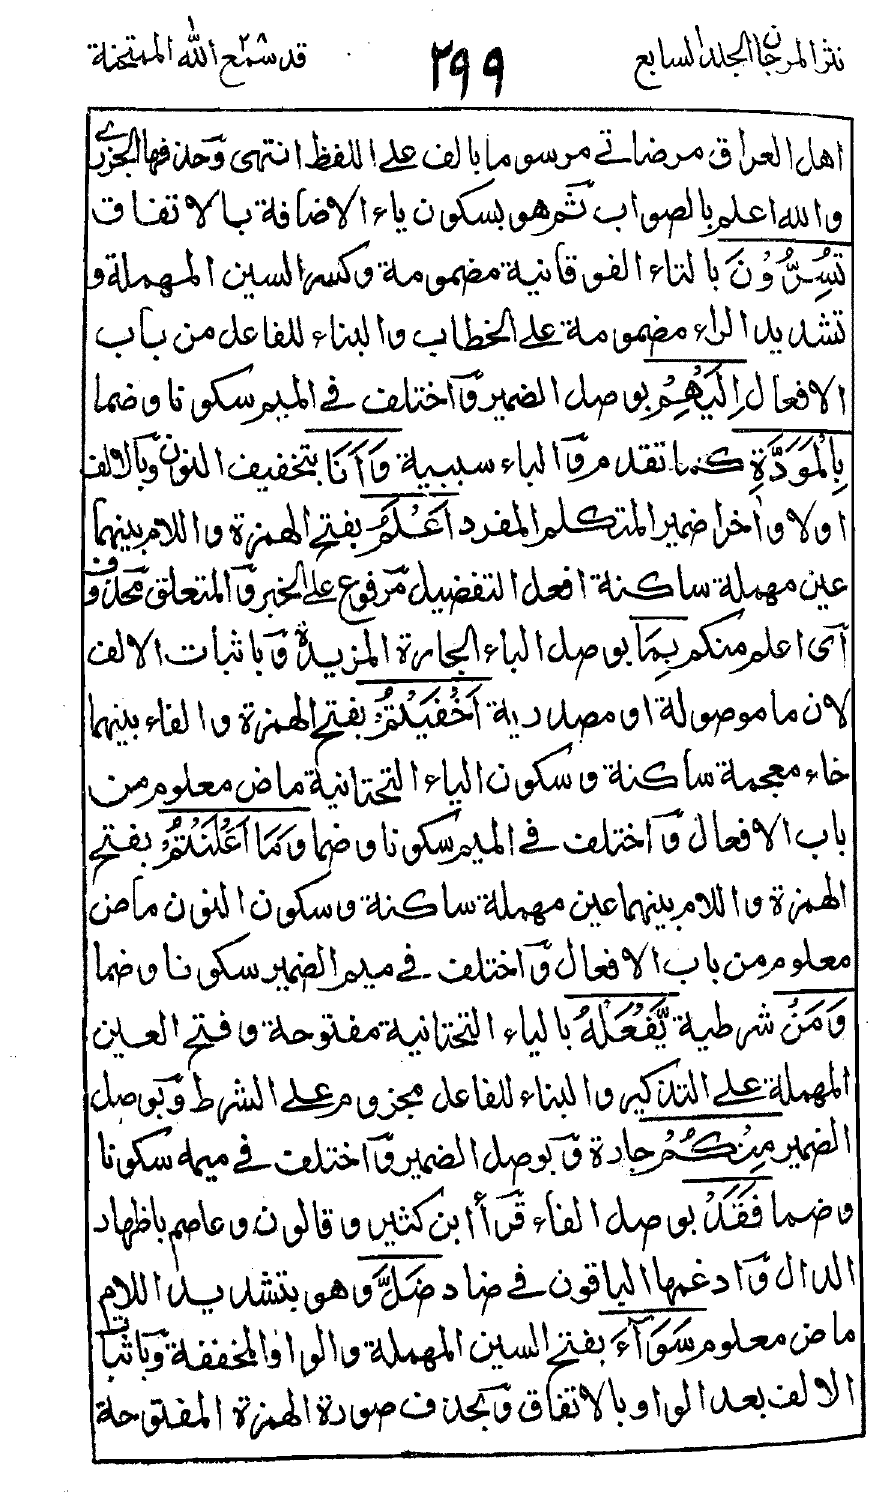 نثر المرجان الجلد السابع
٢٩٩
قد سمع الله ٢٨ الممتحنة
اهل العراق مرضاتي مرسوما بالف على اللفظ انتهى وحذفها الجزري
والله اعلم بالصواب ثم هو بسكون ياء الاضافة بالاتفاق
تُسِرُّوْنَ بالتاء الفوقانية مضمومة وكسر السين المهملة و
تشديد الراء مضمومة على الخطاب والبناء للفاعل من باب
الافعال اِلَيْهِمْ بوصل الضمير واختلف في الميم سكونا وضما
بِالْمَوَدَّةِ كما تقدم والباء سببية وَاَنَا بتخفيف النون وبالالف
اولا واٰخرا ضمير المتكلم المفرد اَعْلَمُ بفتح الهمزة واللام بينهما
عين مهملة ساكنة افعل التفضيل مرفوع على الخبر والمتعلق محذوف
اى اعلم منكم بِمَا بوصل الباء الجارة المزيدة وباثبات الالف
لان ما موصولة او مصدرية اَخْفَيْتُمْ بفتح الهمزة والفاء بينهما
خاء معجمة ساكنة وسكون الياء التحتانية ماض معلوم من
باب الافعال واختلف في الميم سكونا وضما وَمَا اَعْلَنْتُمْ بفتح
الهمزة واللام بينهما عين مهملة ساكنة وسكون النون ماض
معلوم من باب الافعال واختلف في ميم الضمير سكونا وضما
وَمَنْ شرطية يَّفْعَلْهُ بالياء التحتانية مفتوحة وفتح العين
المهملة على التذكير والبناء للفاعل مجزوم على الشرط وبوصل
الضمير مِنْكُمْ جادة وبوصل الضمير واختلف في ميمه سكونا
وضما فَقَدْ بوصل الفاء قرأ ابن كثير وقالون وعاصم باظهار
الدال وادغمها الباقون في ضاد ضَلَّ وهو بتشديد اللام
ماض معلوم سَوَآءَ بفتح السين المهملة والواو المخففة وباثبات
الالف بعد الواو بالاتفاق وبحذف صورة الهمزة المفتوحة